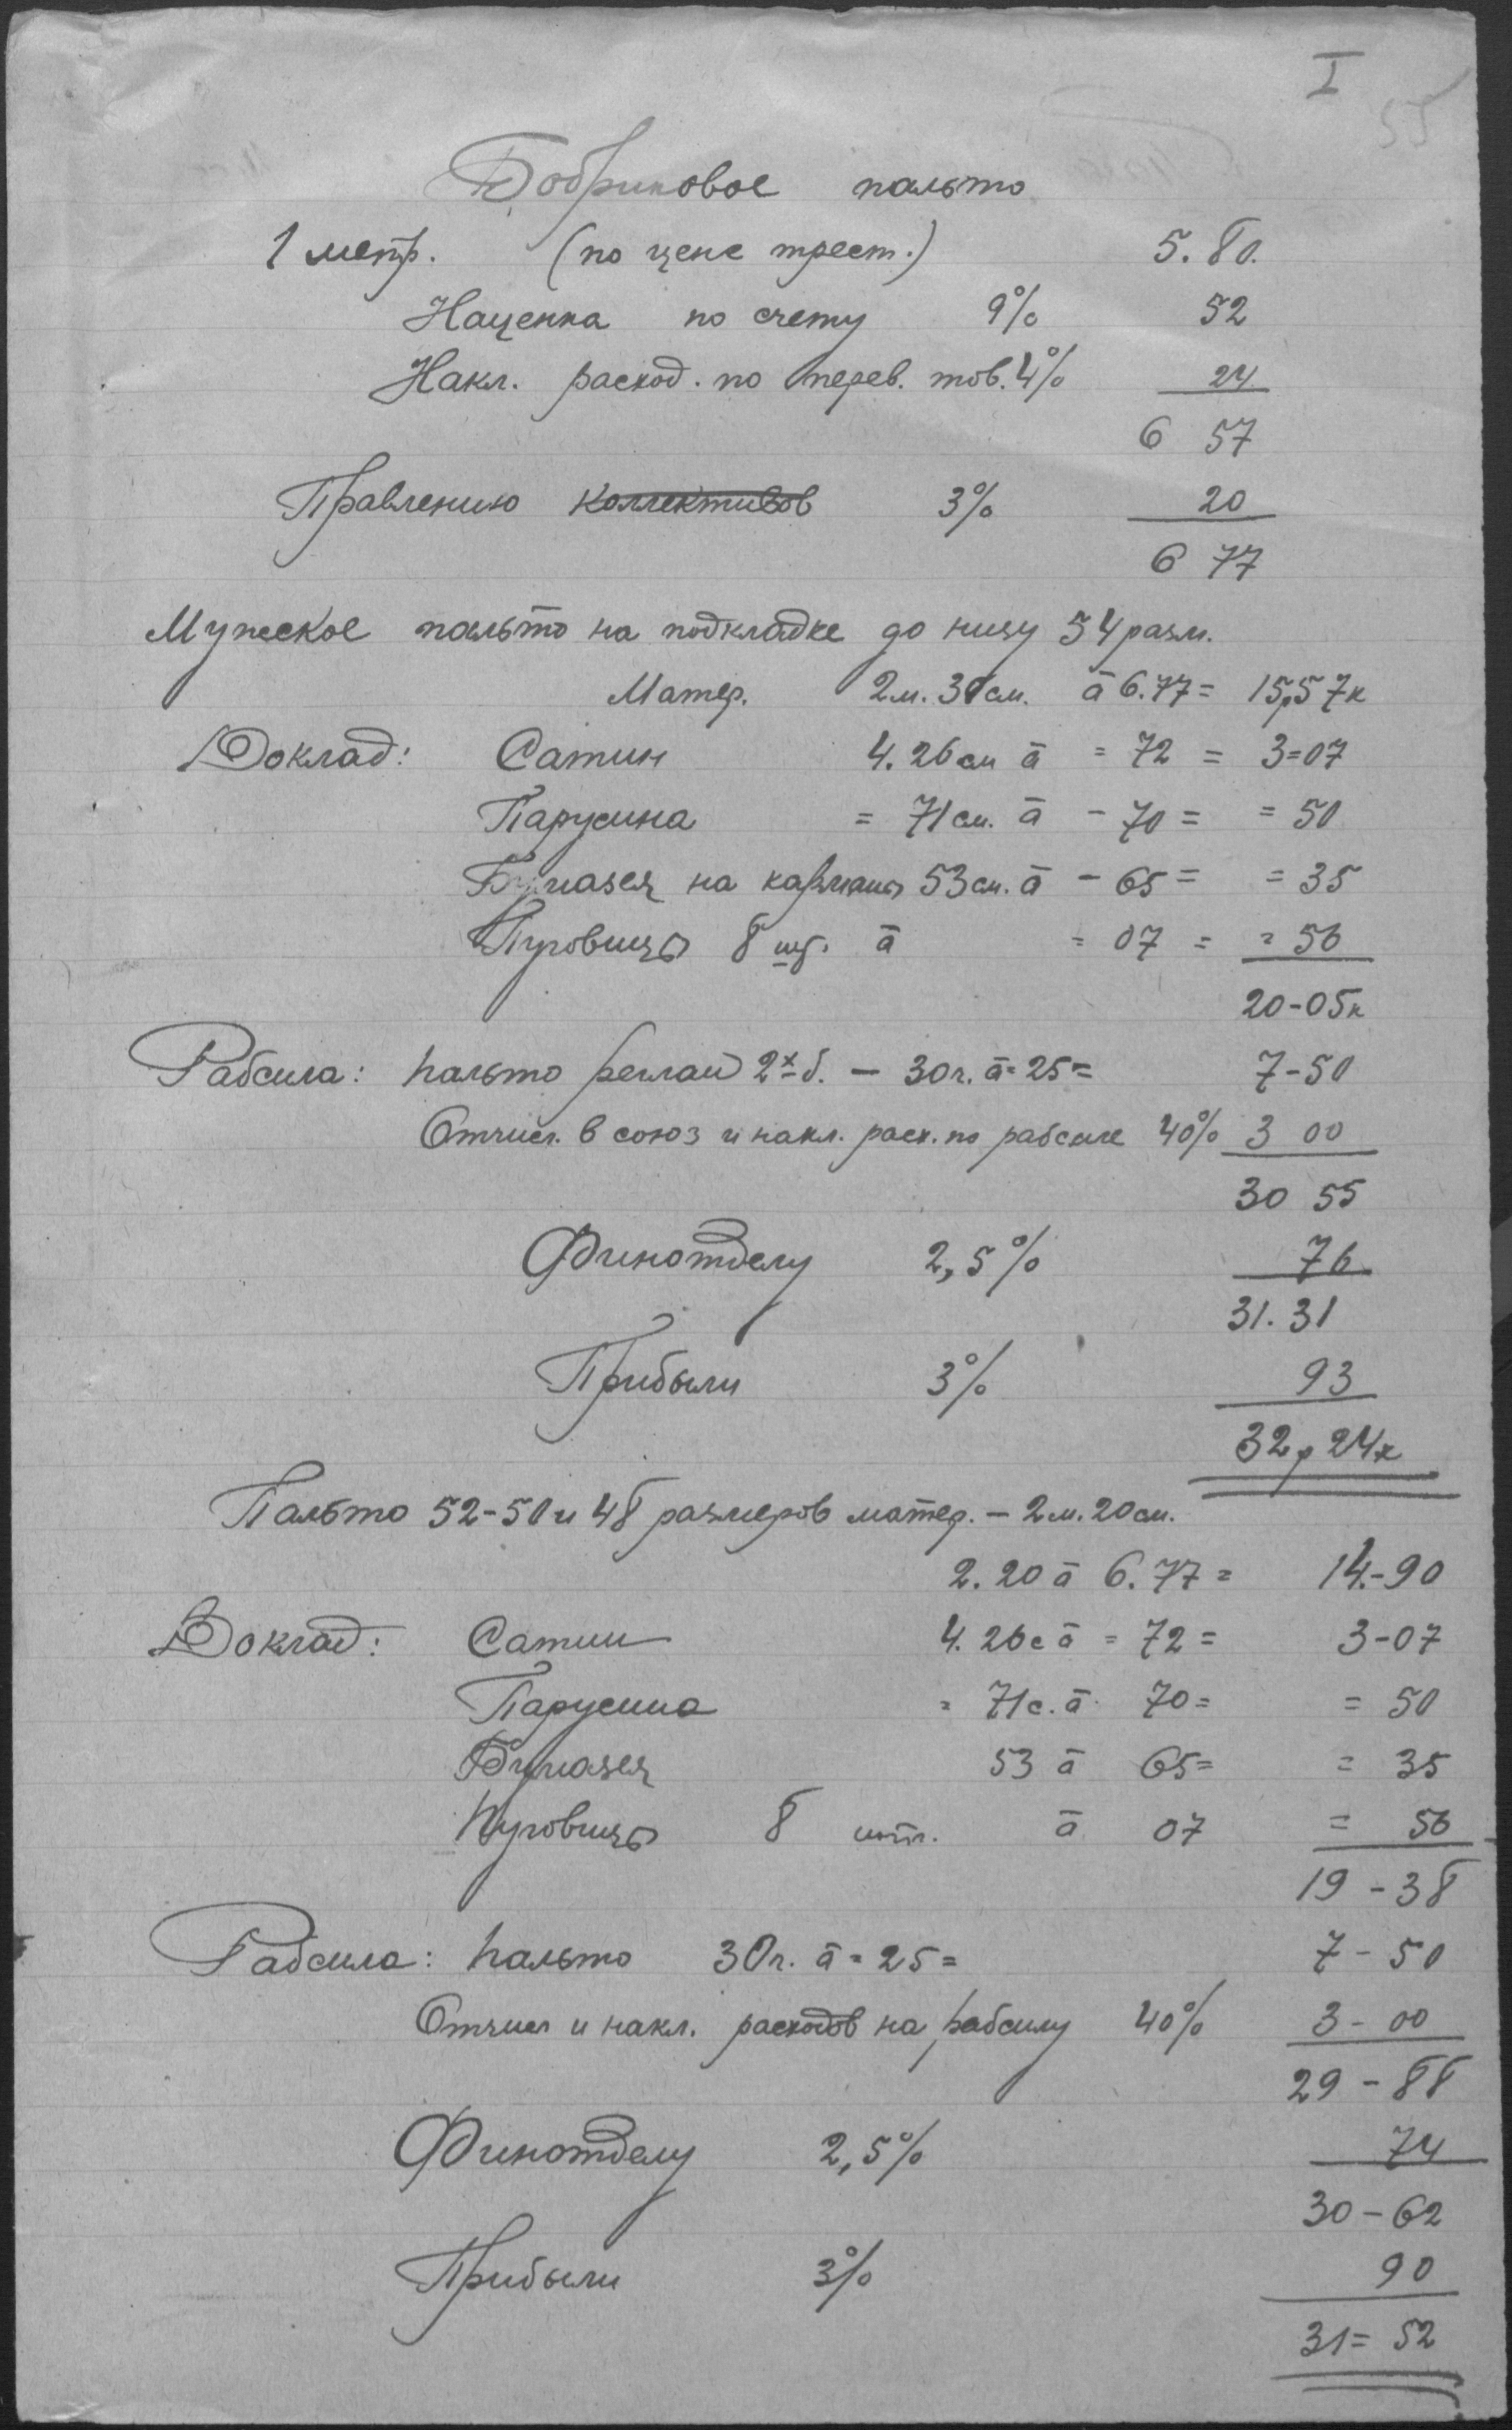 I
Бобриковое пальто
1 метр. (по цене трест.) 5.80.
Наценка по счету 9% 52
Накл. расход. по перев. тов. 4% 24
6 57
Правлению коллективов 3% 20
6 77
Мужское пальто на подкладке до низу 54 разм.
Матер. 2 м. 30 см. à 6.77 = 15р57к
Доклад: Сатин 4.26 см à = 72 = 3=07
Парусина = 71 см. à - 70 = = 50
Бумазея на карманы 53 см. à - 65 = = 35
Пуговицы 8 шт. à = 07 = = 56
20-05к
Рабсила: пальто реглан 2х б. - 30 ч. à = 25 = 7-50
Отчисл. в союз и накл. расх. по рабсиле 40% 3 00
30 55
Финотделу 2,5% 76
31.31
Прибыли 3% 93
32р24к
Пальто 52-50 и 48 размеров матер. - 2 м. 20 см.
2.20 à 6.77 = 14.-90
Доклад: Сатин 4.26 с à = 72 = 3-07
Парусина = 71 с. à 70 = = 50
Бумазея 53 à 65 = = 35
Пуговицы 8 шт. à 07 = 56
19-38
Рабсила: пальто 30 ч. à = 25 = 7-50
Отчисл и накл. расходов на рабсилу 40% 3-00
29-88
Финотделу 2,5% 74
30-62
Прибыли 3% 90
31=52